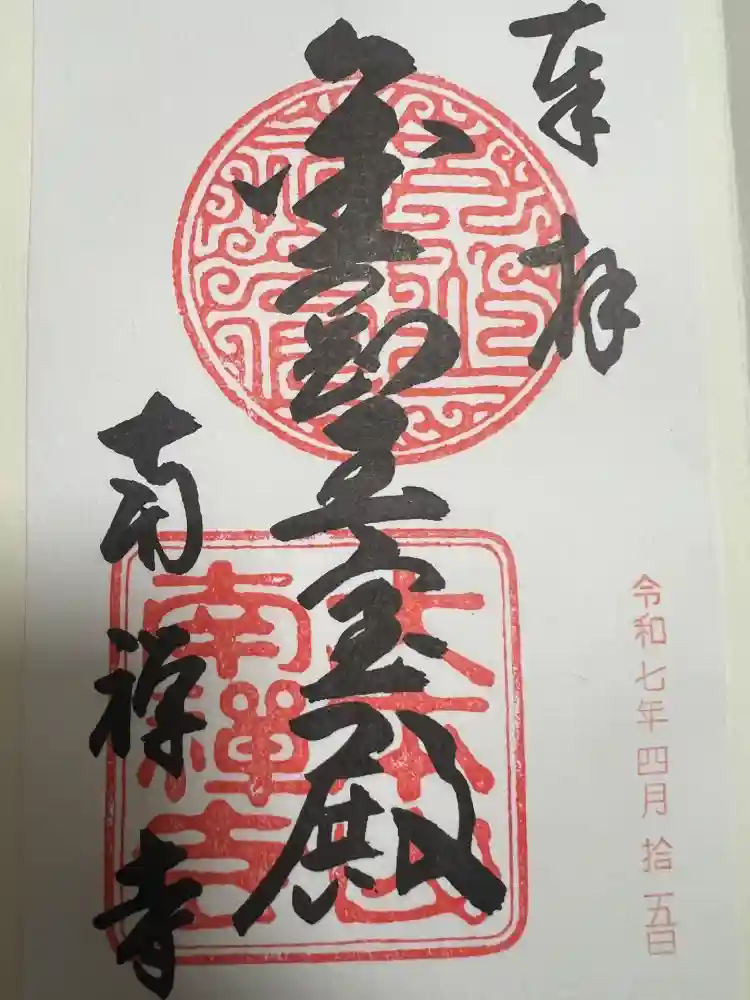 奉拝
令和七年四月拾五日
金剛王宝殿
南禅寺
大本山
南禪寺